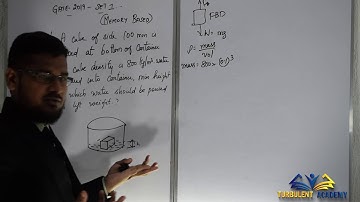 GATE 2019 - SET 1
(MEMORY BASED)
A cube of side 100 mm is
at bottom of container
cube density is 800 kg/m³ water
into container, min height
which water should be poured
weight ?
h
FBD
W = mg
ρ = mass
vol
mass = 800 × (0.1)³
TURBULENT ACADEMY